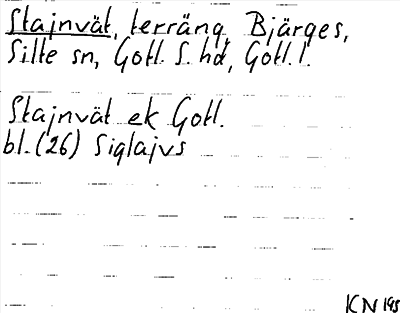 Stajnvät, terräng, Bjärges,
Silte sn, Gotl. S. hd, Gotl. l.
Stajnvät ek Gotl.
bl. (26) Siglajvs
KN 195